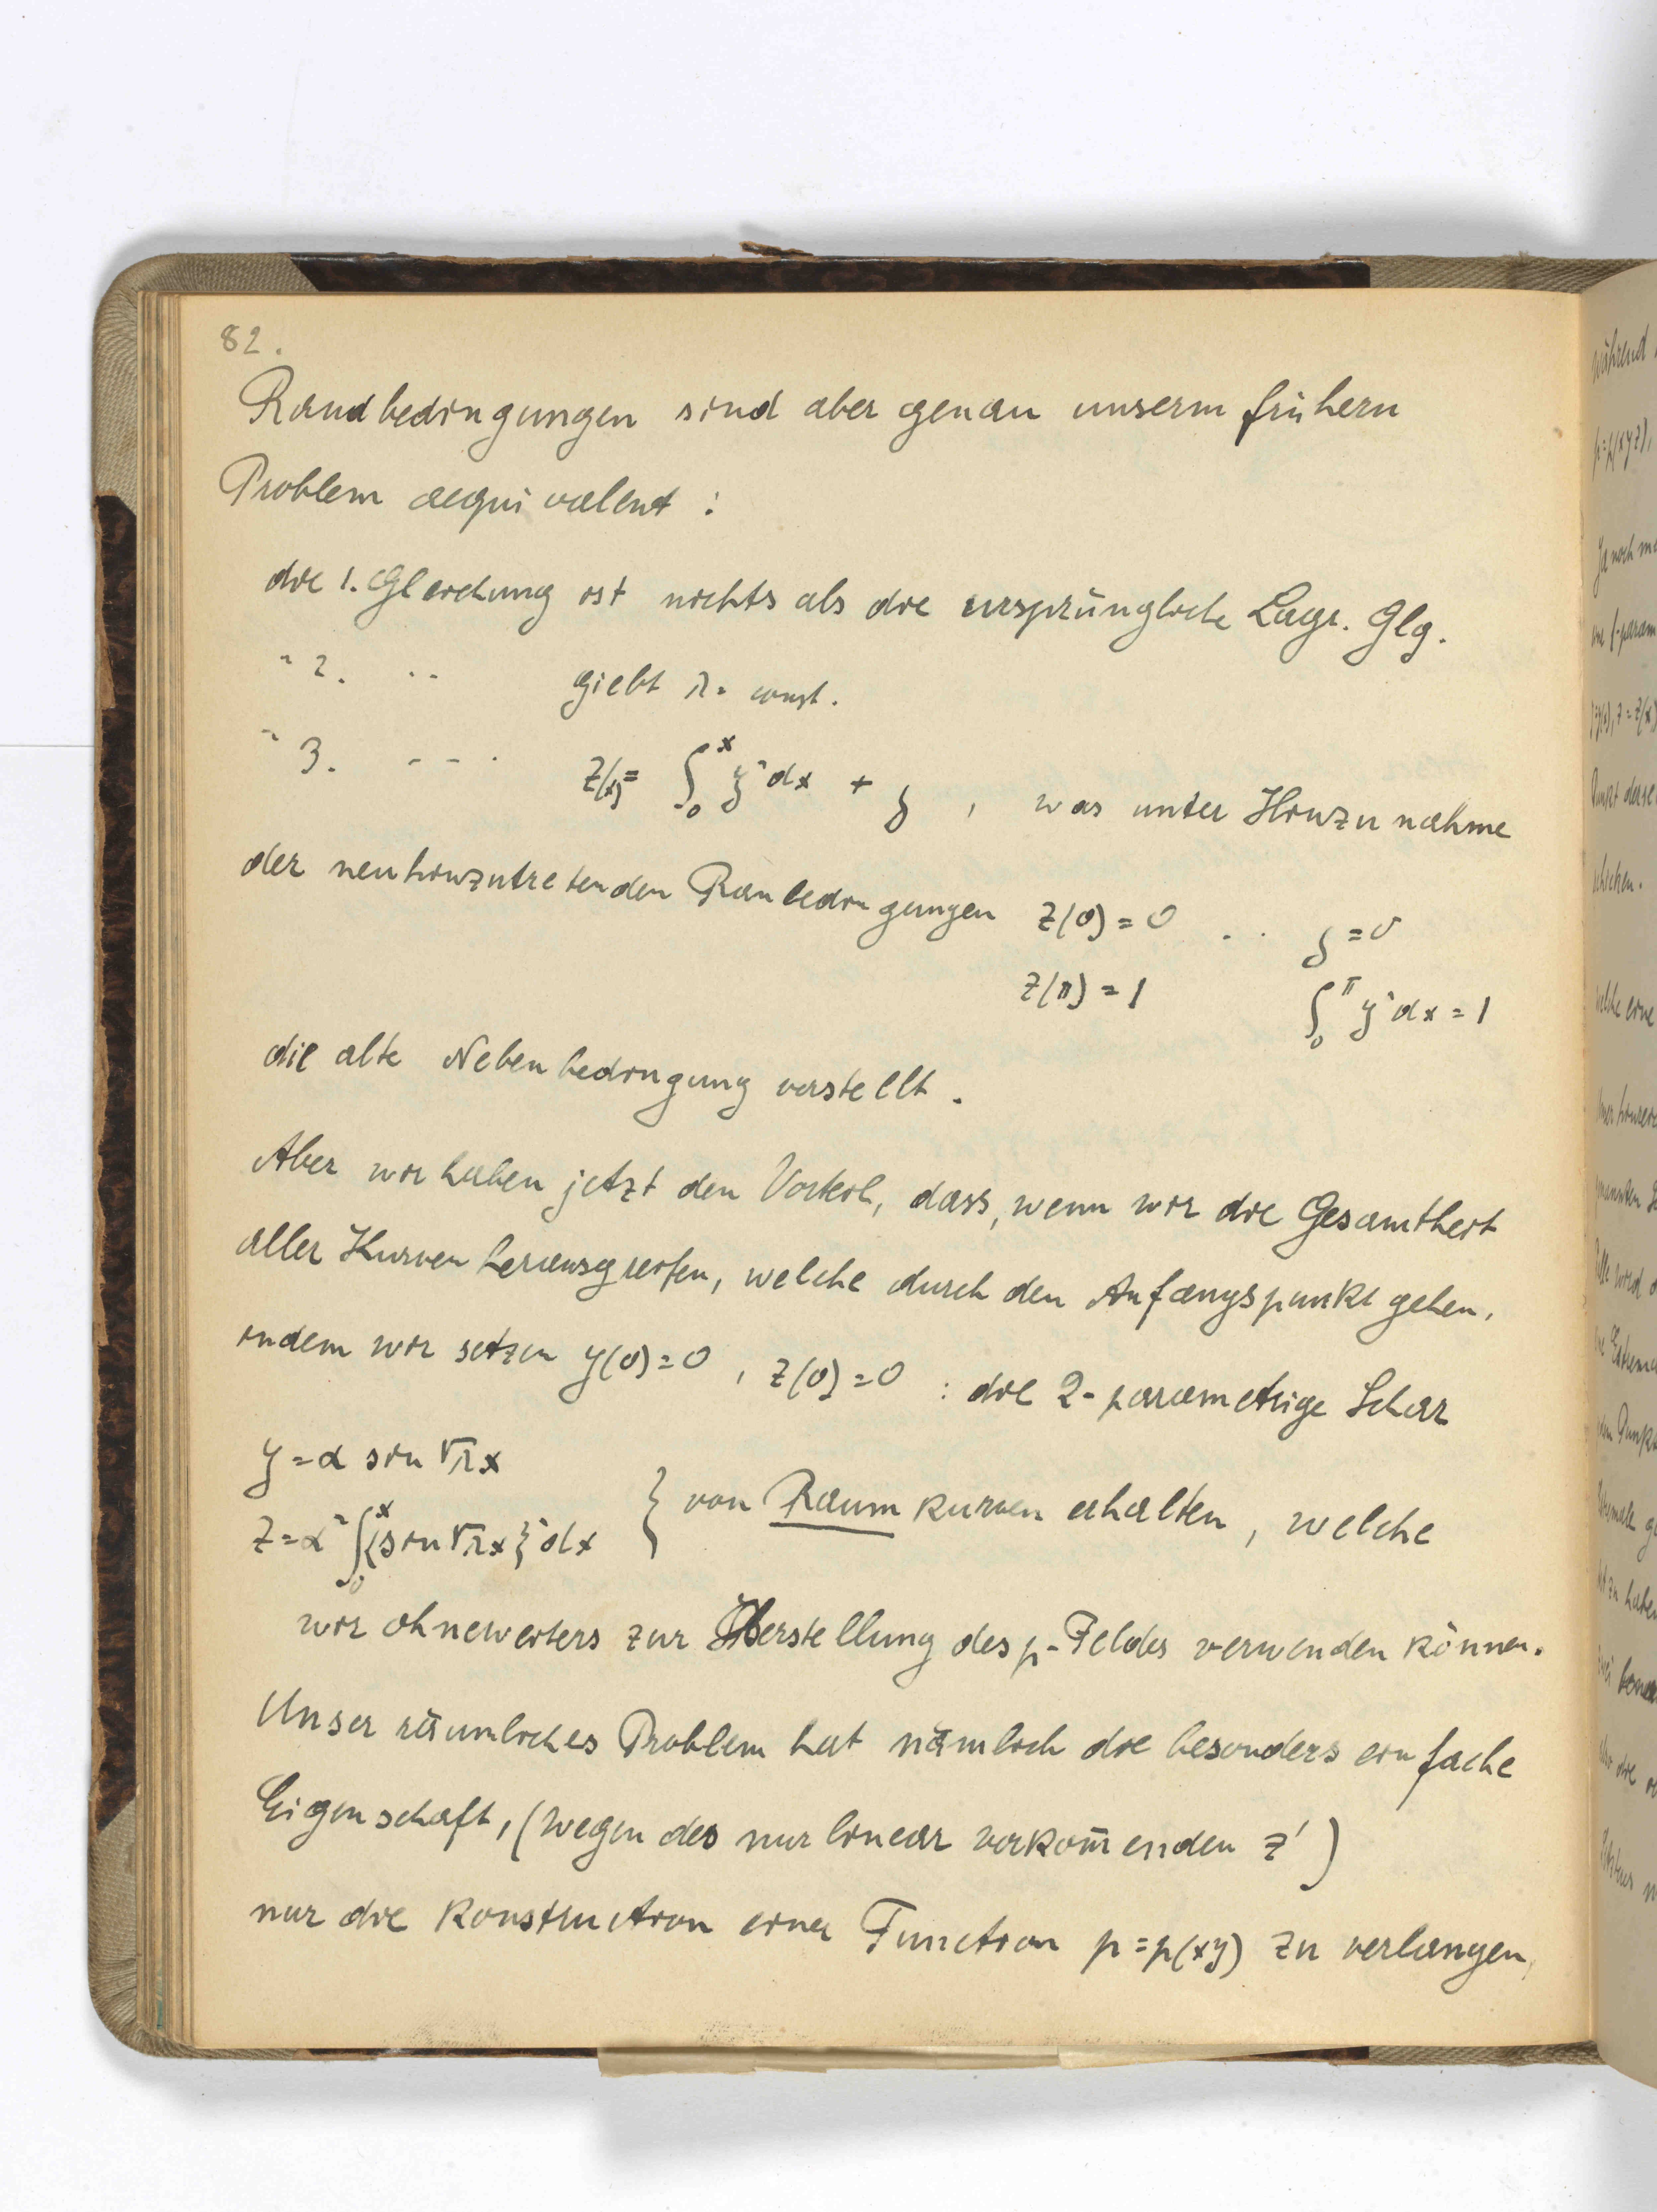 82.
Randbedingungen sind aber genau unserm frühern
Problem aequivalent :
die 1. Gleichung ist nichts als die ursprüngliche Lagr. Glg.
" 2. " giebt λ = const.
" 3. - - - z(x) = ∫₀ˣ y² dx + ζ , was unter Hinzunahme
der neuhinzutretenden Ranbedingungen z(0) = 0 . . ζ = 0
z(π) = 1 ∫₀^π y² dx = 1
die alte Nebenbedingung vorstellt .
Aber wir haben jetzt den Vorteil, dass, wenn wir die Gesamtheit
aller Kurven herausgreifen, welche durch den Anfangspunkt gehen,
indem wir setzen y(0) = 0 , z(0) = 0 : die 2-parametrige Schar
y = α sin √λ x
z = α² ∫₀ˣ {sin √λ x}² dx } von Raumkurven erhalten , welche
wir ohneweiters zur Herstellung des p-Feldes verwenden können.
Unser räumliches Problem hat nämlich die besonders einfache
Eigenschaft, (wegen des nur linear vorkom̄enden z')
nur die Konstruction einer Function p = p(xy) zu verlangen,
während
p=p(xyz),
Ja noch